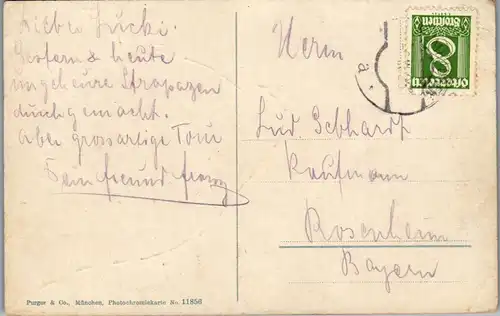 Lieber Lucki.
Gestern & heute
ungeheure Strapazen
durchgemacht.
Aber grossartige Tour
Dein Freund Franz
Herrn
Lud Gebhardt
Kaufmann
Rosenheim
Bayern
8
Groschen
Österreich
a
Purger & Co., München, Photochromiekarte No. 11856